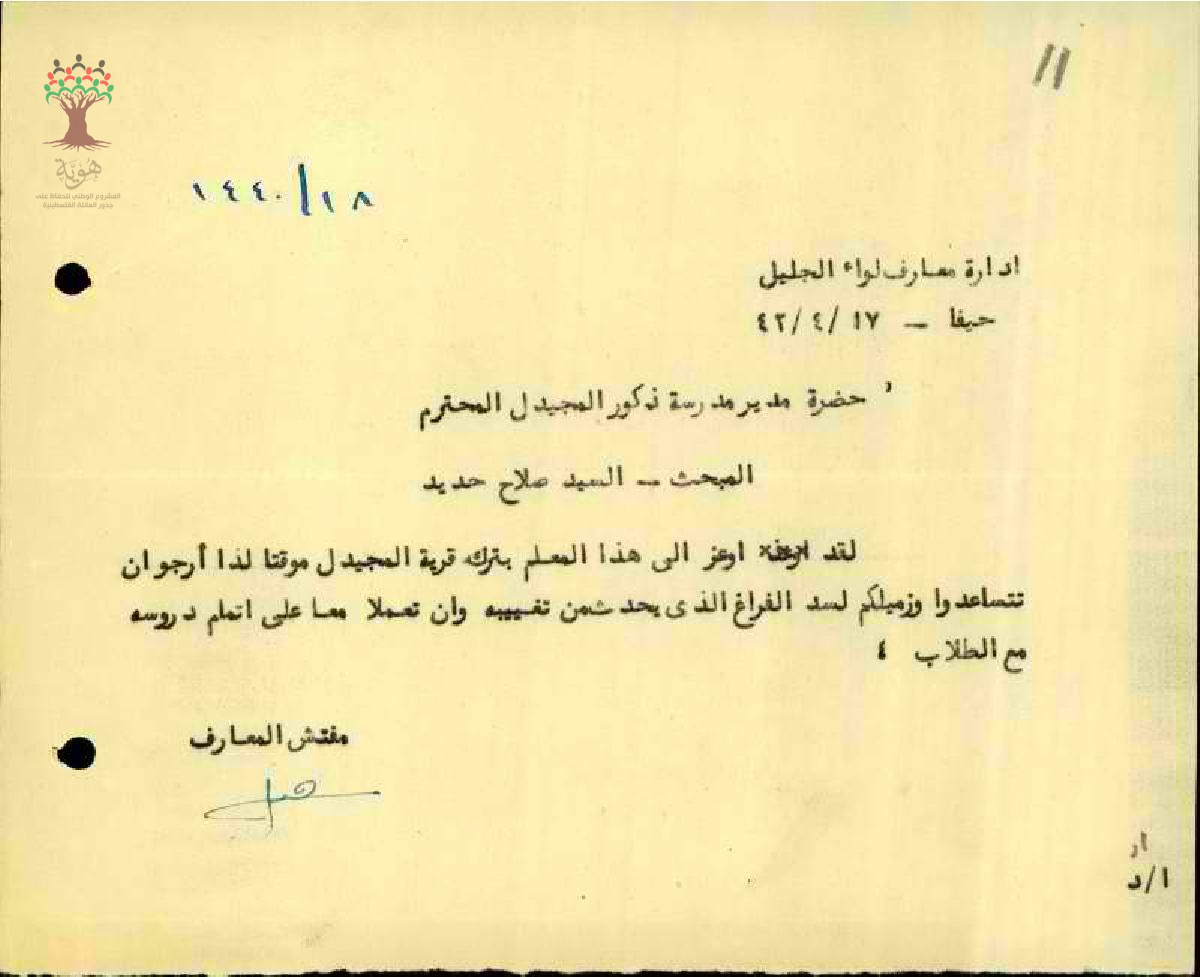 ١١
هُوِيَّة
المشروع الوطني للحفاظ على
جذور العائلة الفلسطينية
١٤٤٠/١٨
ادارة معارف لواء الجليل
حيفا – ١٧ /٤ /٤٢
حضرة مدير مدرسة ذكور المجيدل المحترم
المبحث – السيد صلاح حديد
لقد اوعز الى هذا المعلم بترك قرية المجيدل موقتا لذا أرجو ان
تتساعدوا وزميلكم لسد الفراغ الذى يحدث من تغييبه وان تعملا معا على اتمام دروسه
مع الطلاب ٤
مفتش المعارف
ار
ا/د